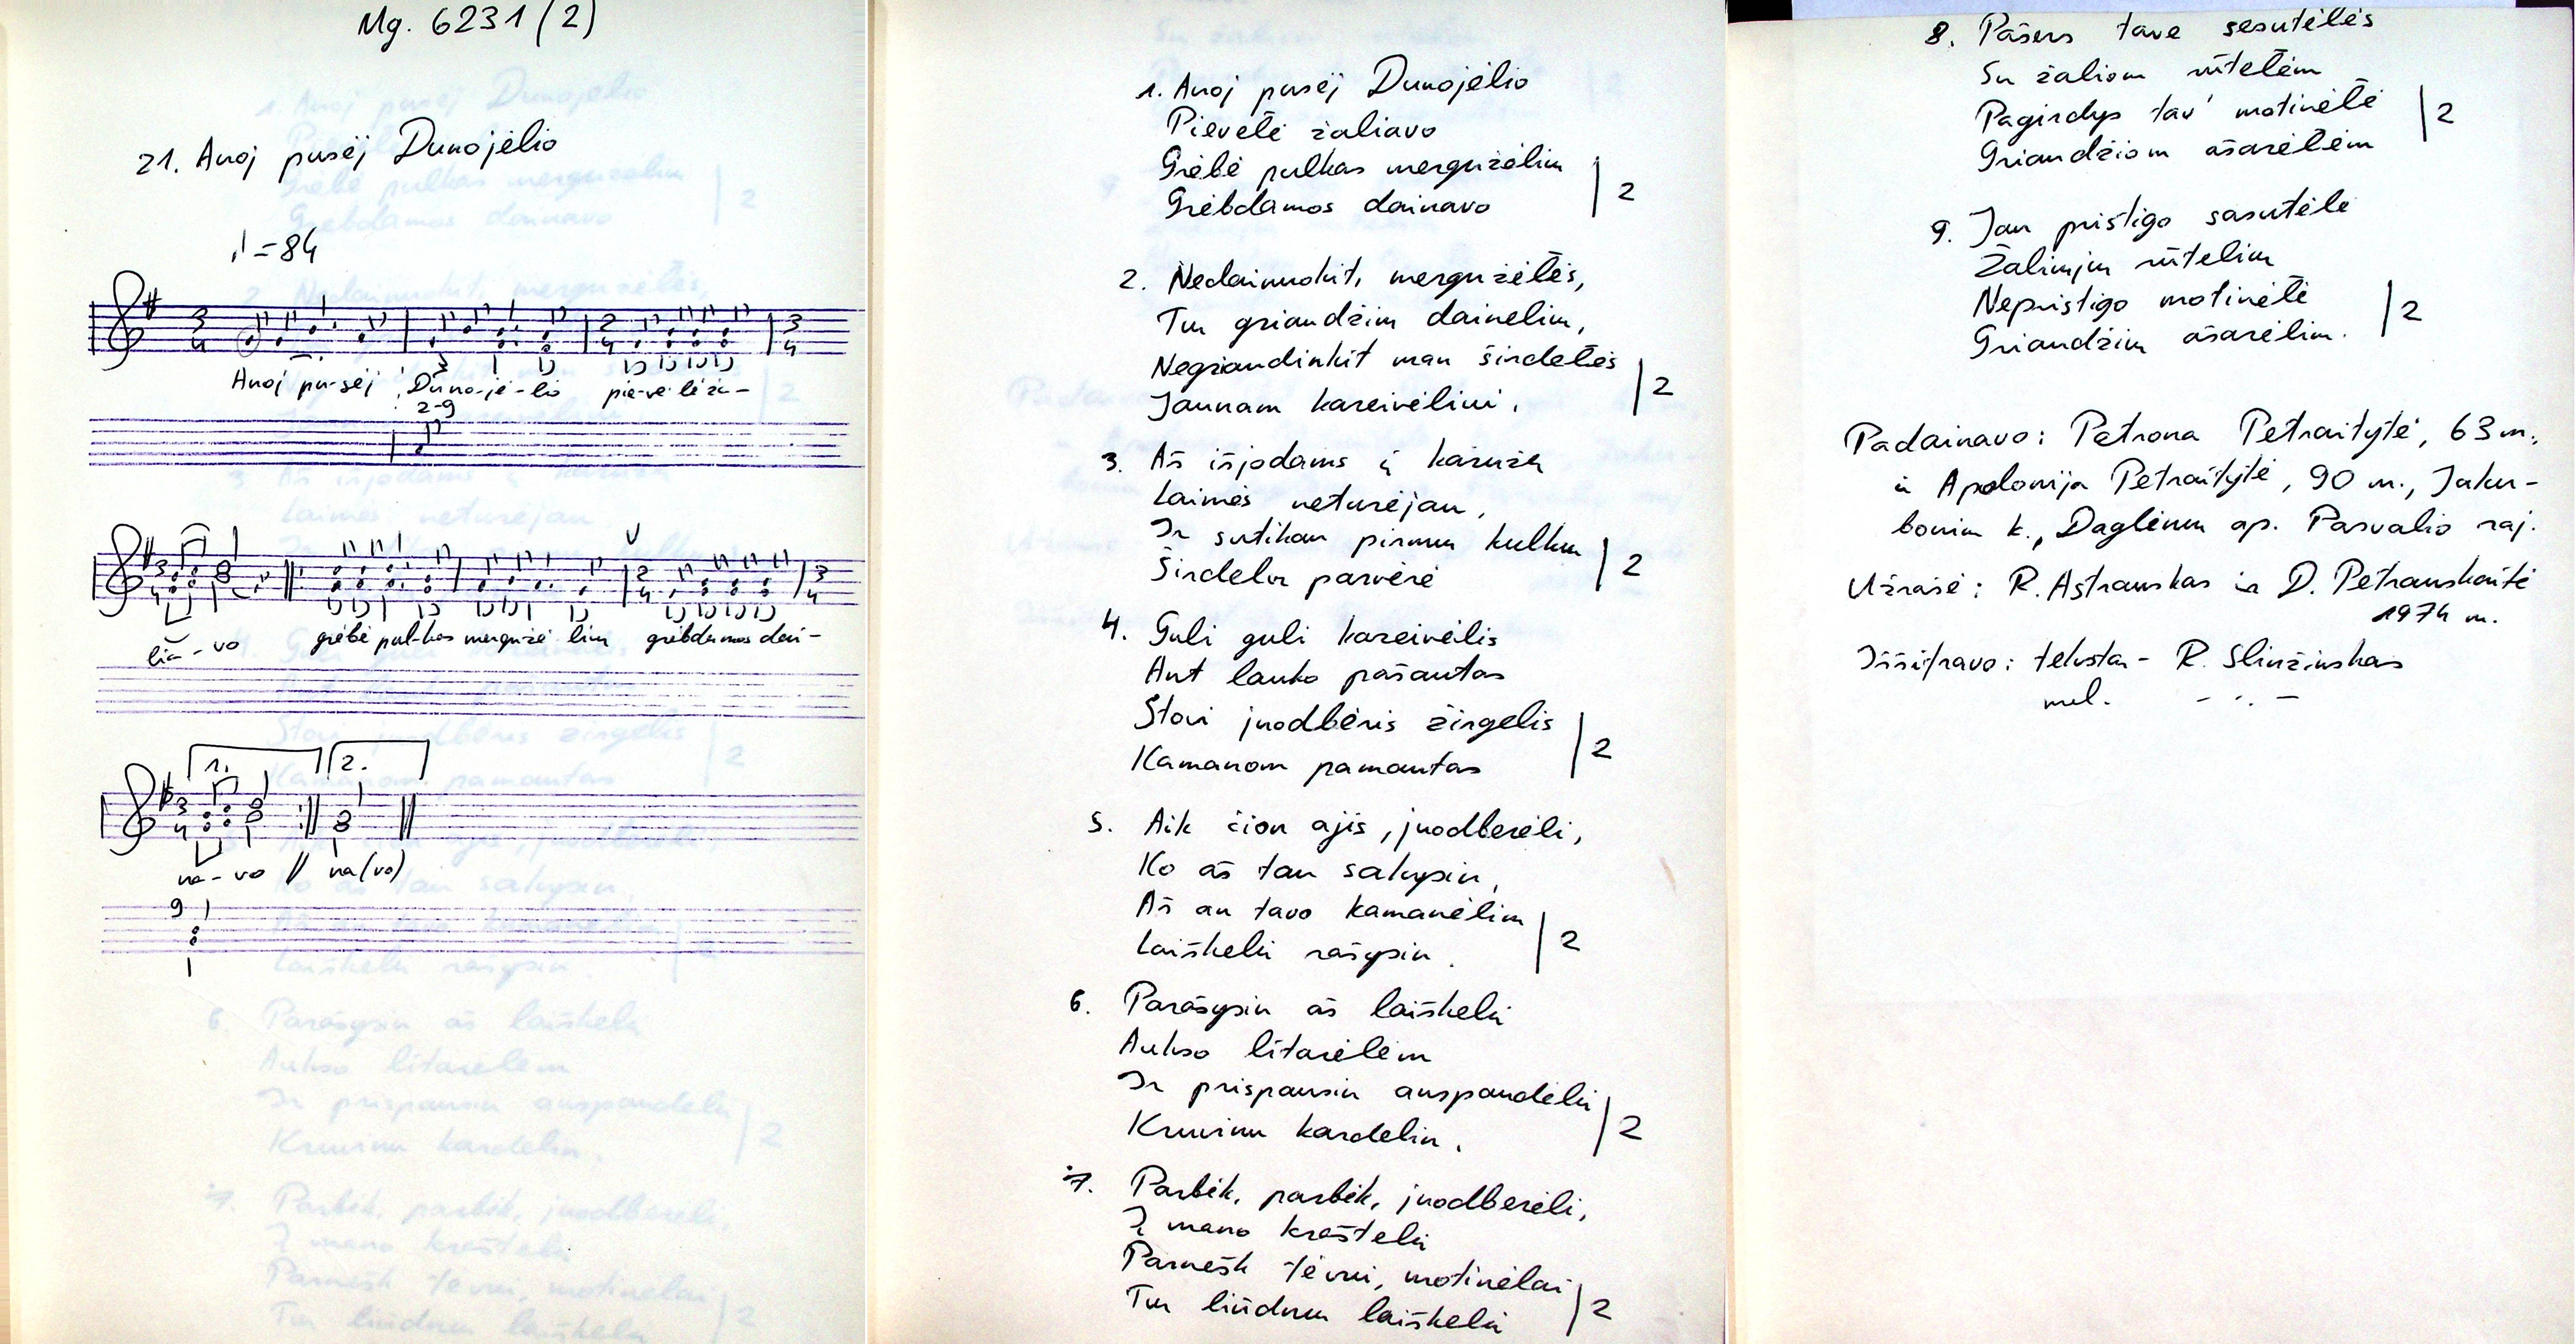 Mg. 6231 (2)
21. Anoj pusėj Dunojėlio
♩ = 84
3/4
2/4
3/4
Anoj pu-sėj Duno-jė-lio pie-ve-lė ža-
2-9
3/4
2/4
3/4
lia-vo grėbė pul-kas mergužė lių grėbdamos dai-
1. 2.
3/4
na-vo // na(vo)
9
1. Anoj pusėj Dunojėlio
Pievelė žaliavo
Grėbė pulkas mergužėlių
Grėbdamos dainavo |2
2. Nedainuokit, mergužėlės,
Tų griaudžių dainelių,
Negriaudinkit man širdelės
Jaunam kareivėliui. |2
3. Aš išjodams į karužę
Laimės neturėjau,
Ir sutikau pirmų kulkų
Širdelų parvėrė |2
4. Guli guli kareivėlis
Ant lauko pašautas
Stovi juodbėris žirgelis
Kamanom pamautas |2
5. Aik čion ajis, juodberėli,
Ko aš tau sakysiu,
Aš an tavo kamanėlių
Laiškelį rašysiu. |2
6. Parašysiu aš laiškelį
Aukso lītarėlėm
Ir prispausiu auspaudėlį
Kruvinu kardeliu. |2
7. Parbėk, parbėk, juodberėli,
Į mano kraštelį
Parnešk tėvui, motinėlai
Tų liūdnų laiškelį |2
8. Pašers tave sesutėlės
Su žaliom rūtelėm
Pagirdys tav' motinėlė
Griaudžiom ašarėlėm |2
9. Jau pristigo sasutėlė
Žaliųjų rūtelių
Nepristigo motinėlė
Griaudžių ašarėlių. |2
Padainavo: Petrona Petraitytė, 63 m.,
ir Apolonija Petraitytė, 90 m., Jaku-
bonių k., Daglėnų ap. Pasvalio raj.
Užrašė: R. Astrauskas ir D. Petrauskaitė
1974 m.
Iššifravo: tekstą - R. Sliužinskas
mel. - ∴ -